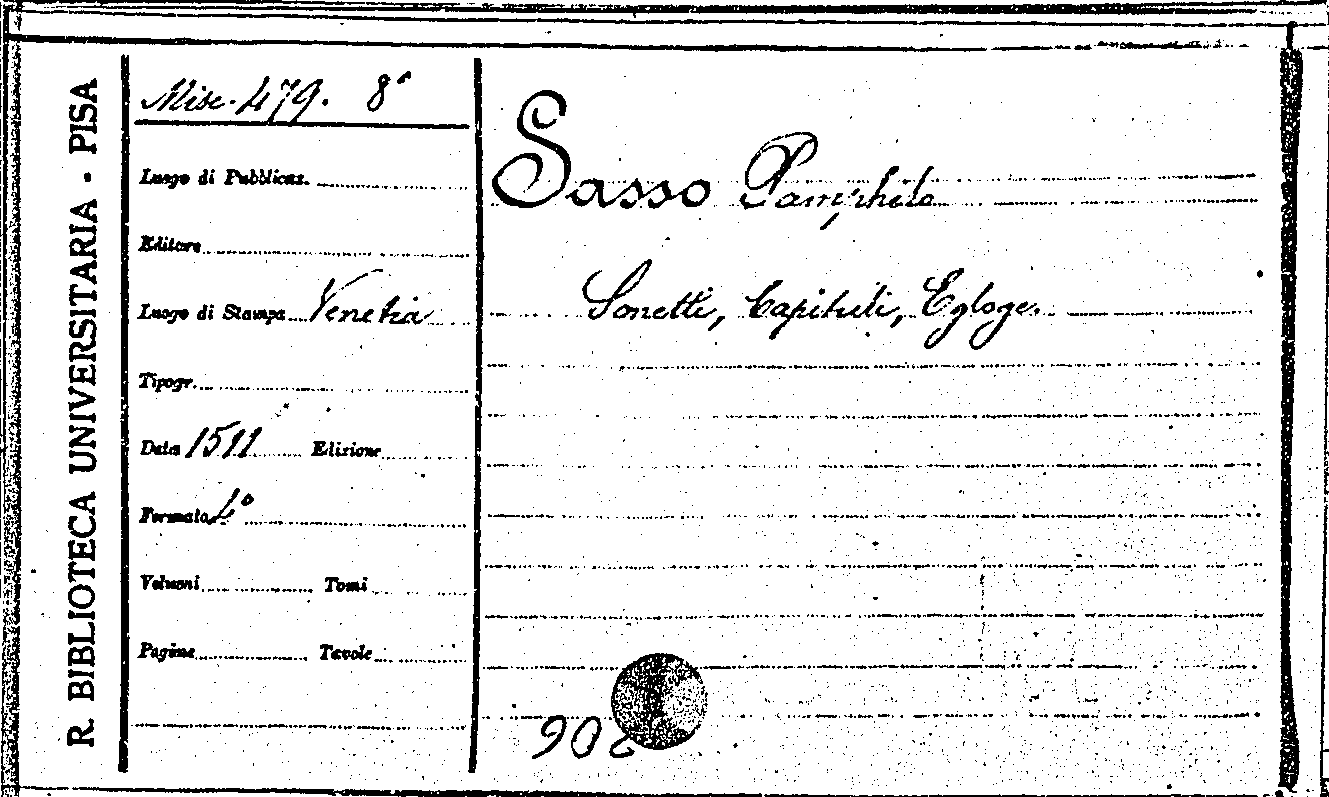 R. BIBLIOTECA UNIVERSITARIA - PISA
Misc. 479. 8°
Luogo di Pubblicaz.
Editore
Luogo di Stampa Venetia
Tipogr.
Data 1511 Edizione
Formato 4°
Volumi Tomi
Pagine Tavole
Sasso Pamphilo
Sonetti, Capituli, Egloge.